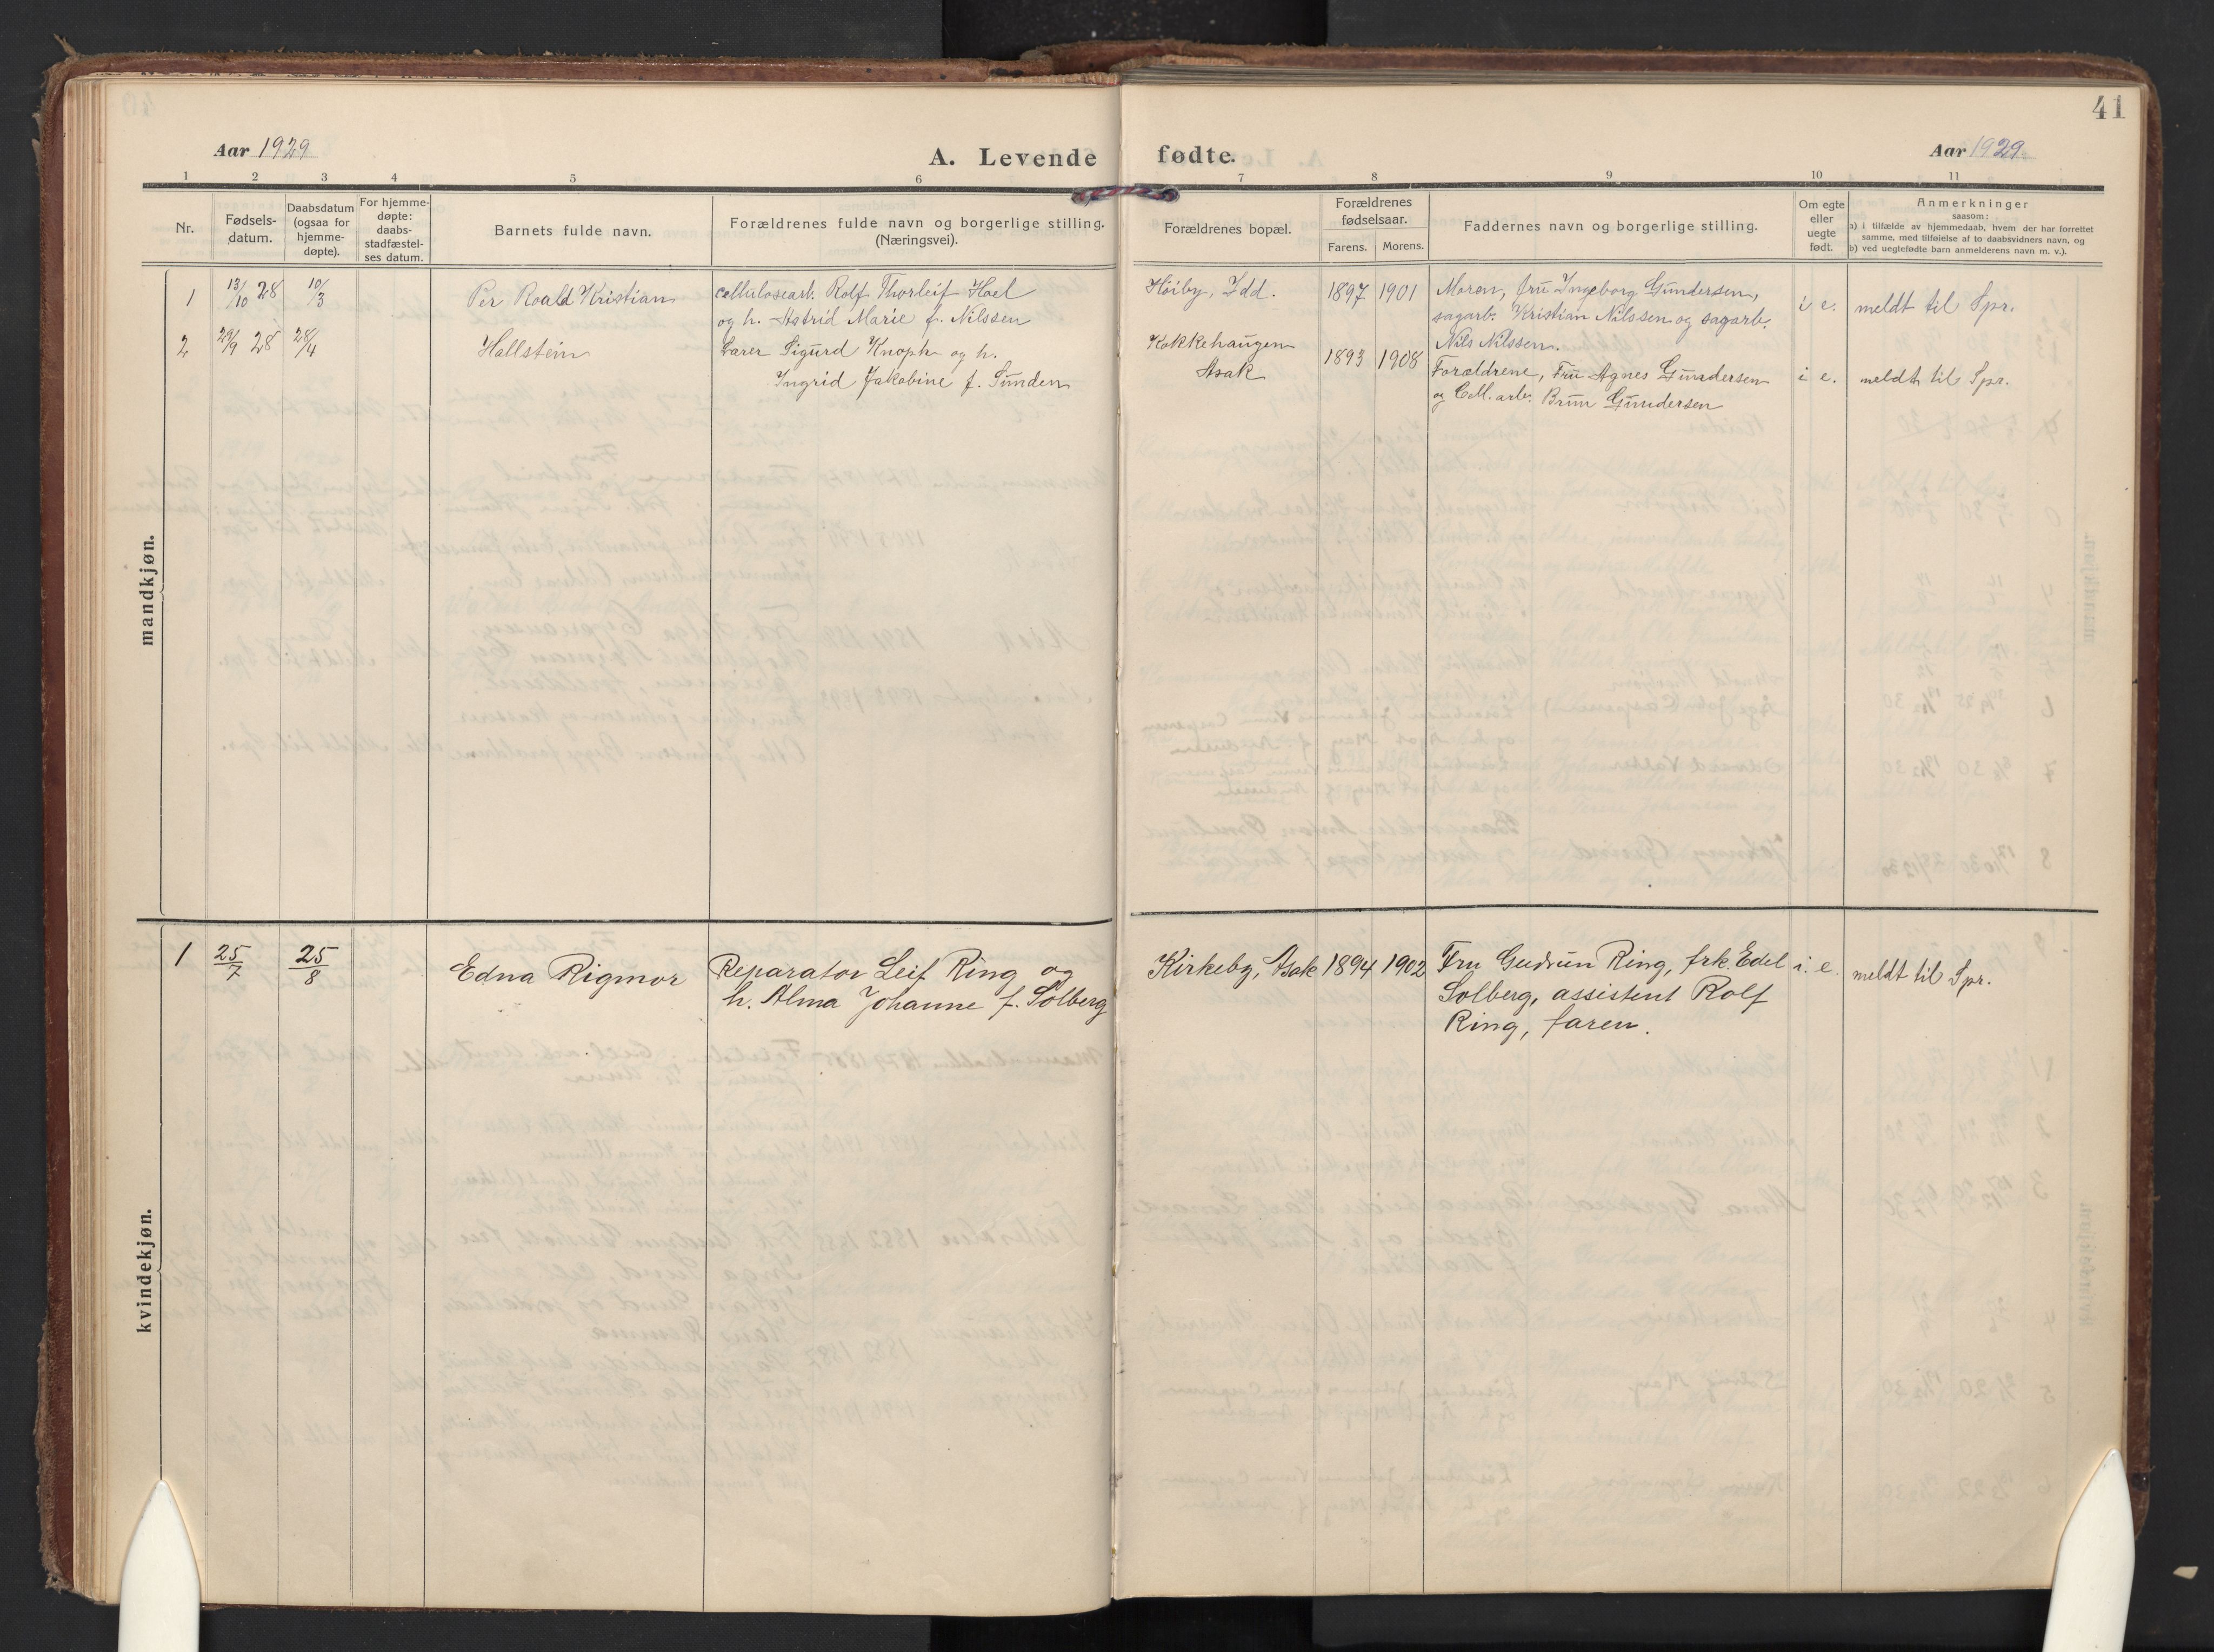 41
Aar 1929
A. Levende fødte.
Aar 1929
1 2 3 4 5 6 7 8 9 10 11
Nr.
Fødsels-
datum.
Daabsdatum
(ogsaa for
hjemme-
døpte).
For hjemme-
døpte:
daabs-
stadfæstel-
ses datum.
Barnets fulde navn.
Forældrenes fulde navn og borgerlige stilling.
(Næringsvei).
Forældrenes bopæl.
Forældrenes
fødselsaar.
Farens. Morens.
Faddernes navn og borgerlige stilling.
Om egte
eller
uegte
født.
Anmerkninger
saasom:
a) i tilfælde av hjemmedaab, hvem der har forrettet
samme, med tilføielse af to daabsvidners navn, og
b) ved uegtefødte barn anmelderens navn m. v.).
mandkjøn.
1 13/10 28 10/3 Per Roald Kristian
Cellulosearb. Rolf Thorleif Hoel
og h. Astrid Marie f. Nilssen
Høiby, Idd. 1897 1901
Moren, fru Ingeborg Gundersen,
sagarb. Kristian Nilssen og sagarb.
Nils Nilssen.
i e. meldt til Spr.
2 29/9 28 28/4 Hallstein
Lærer Sigurd Knoph og h.
Ingrid Jakobine f. Sunden
Kokkehaugen
Asak
1893 1908
Forældrene, Fru Agnes Gundersen
og Cell. arb. Brun Gundersen
i e. meldt til Spr.
kvindekjøn.
1 25/7 25/8 Edna Rigmor
Reparatør Leif Ring og
h. Alma Johanne f. Solberg
Kirkeby, Asak 1894 1902
Fru Gudrun Ring, frk. Edel
Solberg, assistent Rolf
Ring, faren.
i. e. meldt til Spr.